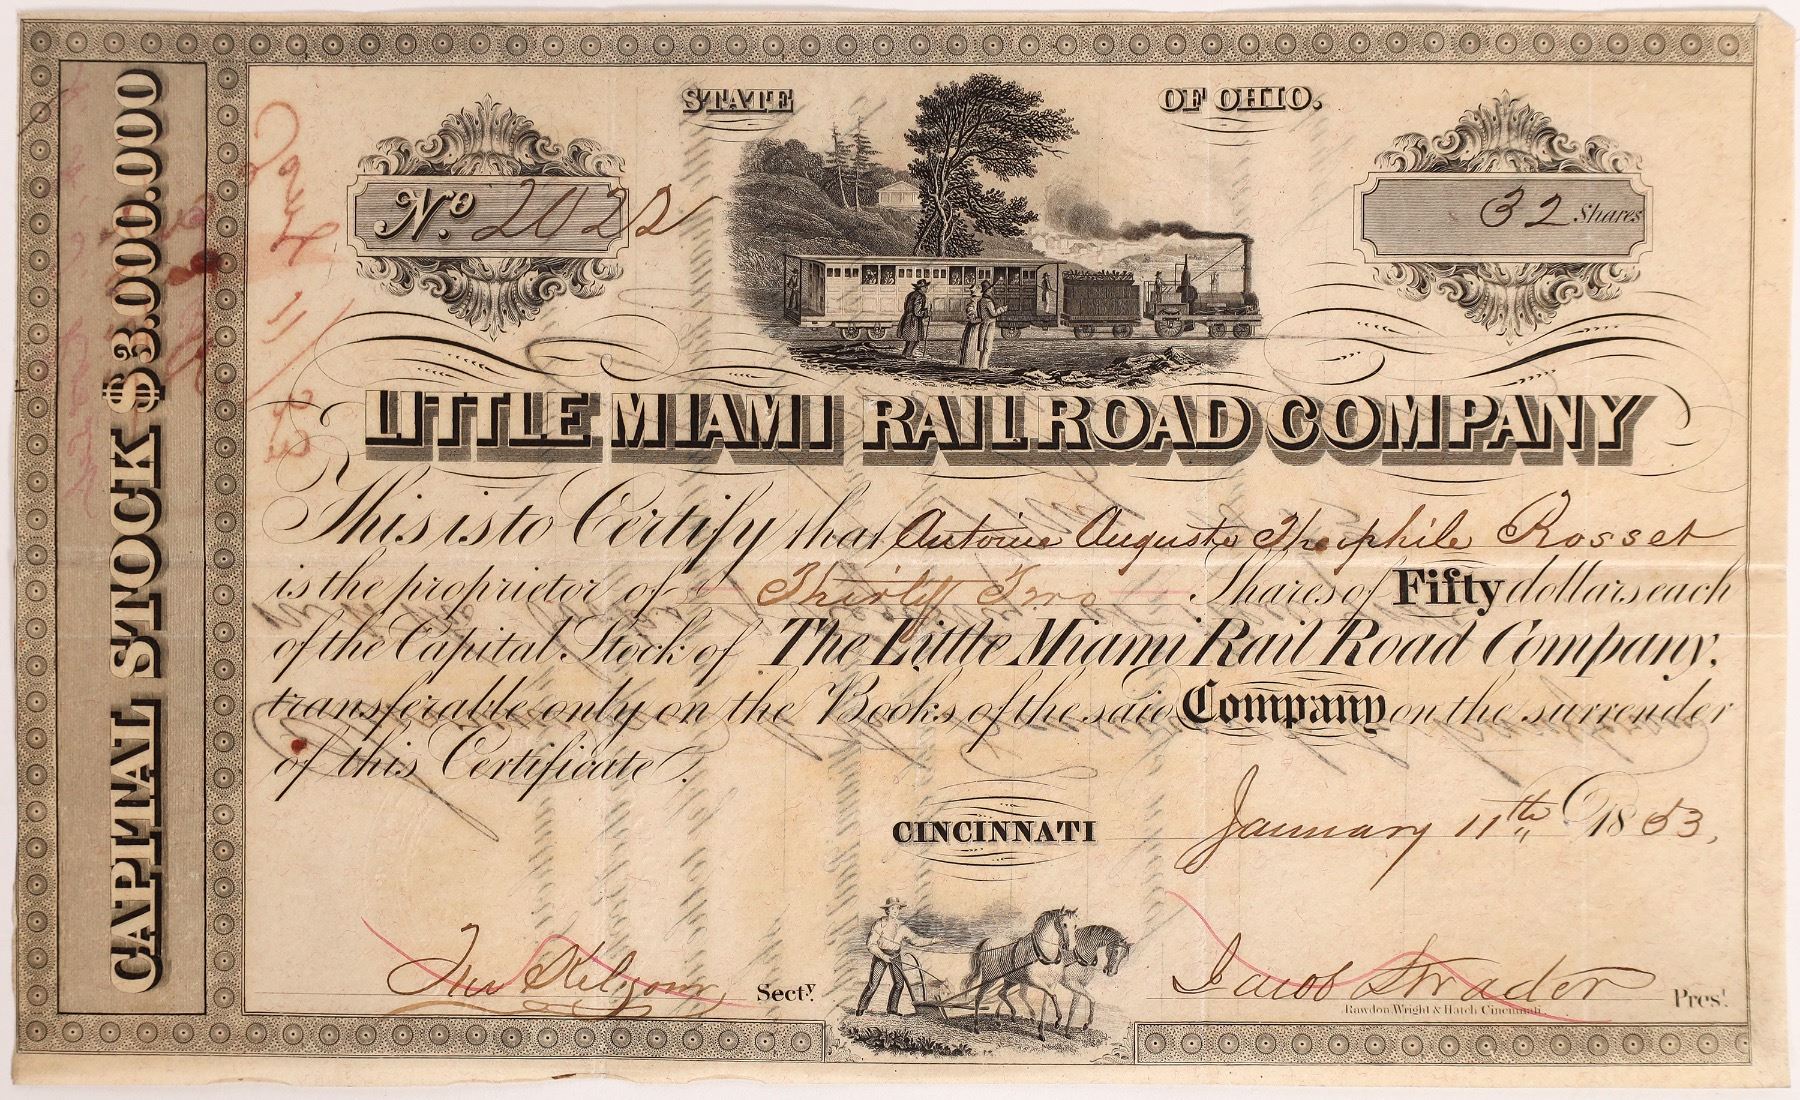 STATE OF OHIO.
No. 2022
32 Shares
CAPITAL STOCK $3.000.000
LITTLE MIAMI RAIL ROAD COMPANY
This is to Certify that Antoine Auguste Theophile Rosset
is the proprietor of Thirty Two Shares of Fifty dollars each
of the Capital Stock of The Little Miami Rail Road Company,
transferable only on the Books of the said Company on the surrender
of this Certificate.
CINCINNATI January 11th 1853,
Secty.
Jacob Strader Prest.
Rawdon, Wright & Hatch Cincinnati.